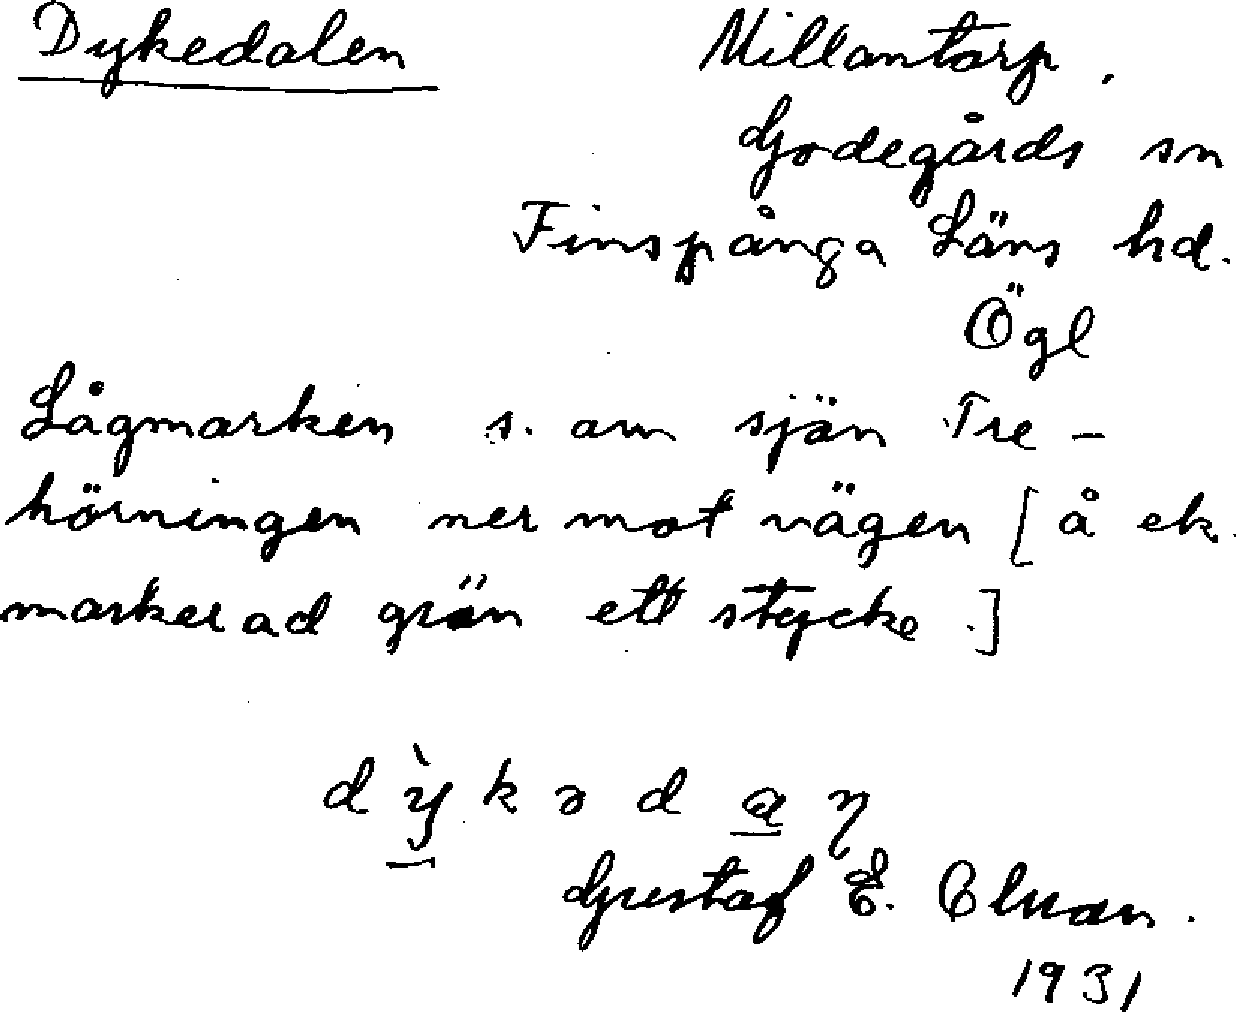 Dykedalen Millantorp.
Godegårds sn
Finspånga Läns hd.
Ögl
Lågmarken s. om sjön Tre-
hörningen ner mot vägen [å ek.
markerad grön ett stycke.]
dỳkədaη
Gustaf E. 
1931